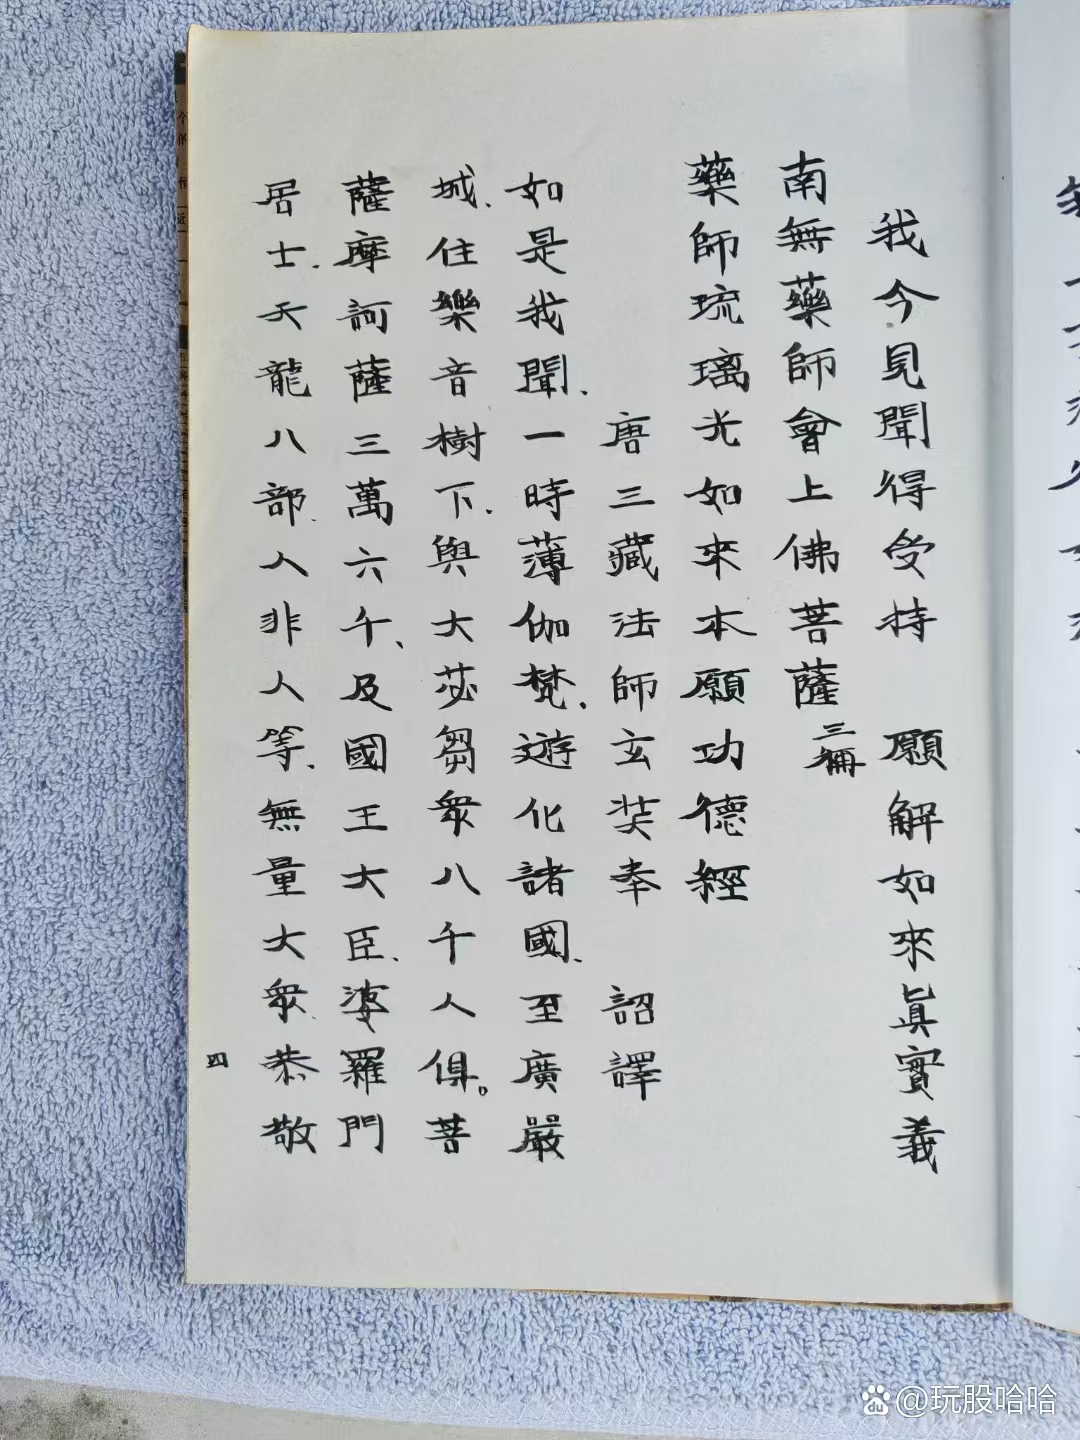 我今見聞得受持 願解如來眞實義
南無藥師會上佛菩薩 三稱
藥師琉璃光如來本願功德經
唐三藏法師玄奘奉 詔譯
如是我聞、一時薄伽梵、遊化諸國、至廣嚴
城、住樂音樹下、與大苾芻衆八千人俱。菩
薩摩訶薩三萬六千、及國王大臣、婆羅門
居士、天龍八部、人非人等、無量大衆、恭敬
四
@玩股哈哈